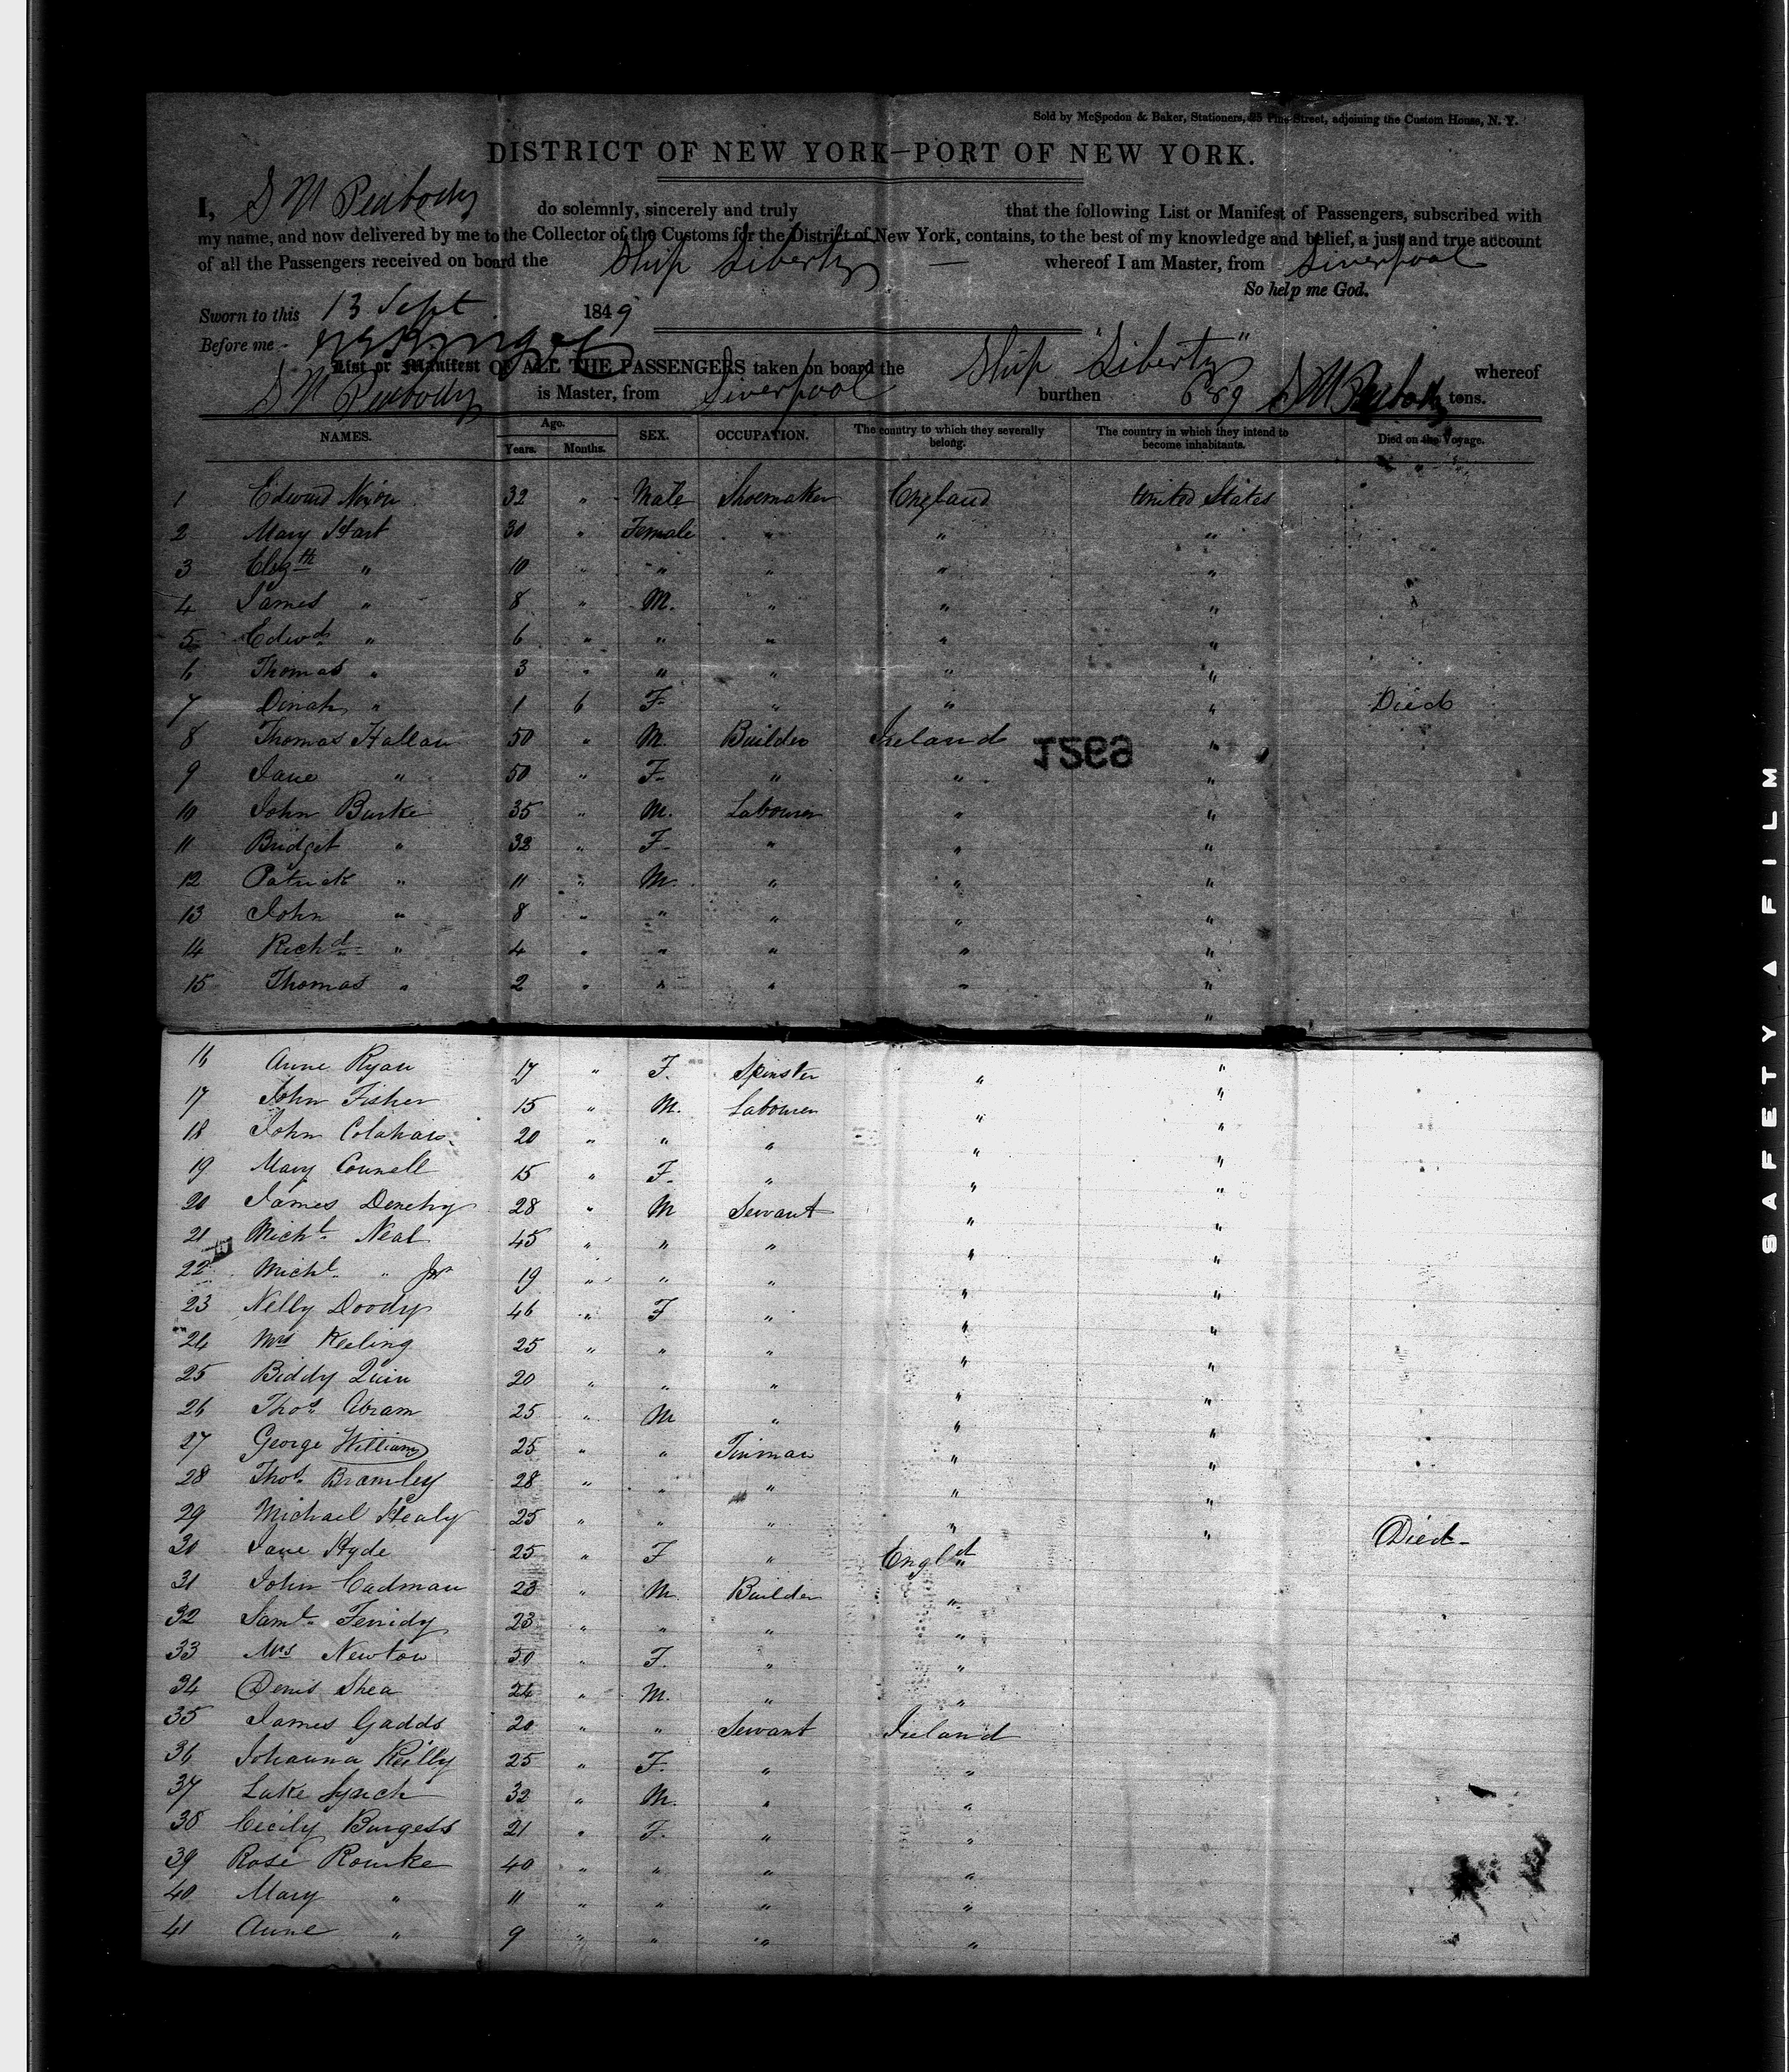 Sold by McSpedon & Baker, Stationers, 25 Pine Street, adjoining the Custom House, N. Y.
DISTRICT OF NEW YORK—PORT OF NEW YORK.
I, S M Peabody do solemnly, sincerely and truly that the following List or Manifest of Passengers, subscribed with
my name, and now delivered by me to the Collector of the Customs for the District of New York, contains, to the best of my knowledge and belief, a just and true account
of all the Passengers received on board the Ship Liberty — whereof I am Master, from Liverpool
So help me God.
Sworn to this 13 Sept 1849
Before me
List or Manifest OF ALL THE PASSENGERS taken on board the Ship "Liberty" whereof
S M Peabody is Master, from Liverpool burthen 689 S M Peabody tons.
NAMES. Age. Years. Months. SEX. OCCUPATION. The country to which they severally belong. The country in which they intend to become inhabitants. Died on the Voyage.
1 Edward Nixon 32 " Male Shoemaker England United States
2 Mary Hart 30 " Female " " "
3 Elizth " 10 " " " " "
4 James " 8 " M. " " "
5 Edwd " 6 " " " " "
6 Thomas " 3 " " " " "
7 Dinah " 1 6 F. " " " Died
8 Thomas Hallan 50 " M. Builder Ireland "
1269
9 Jane " 50 " F. " " "
10 John Burke 35 " M. Labourer " "
11 Bridget " 32 " F. " " "
12 Patrick " 11 " M. " " "
13 John " 8 " " " " "
14 Richd " 4 " " " " "
15 Thomas " 2 " " " " "
16 Anne Ryan 17 " F. Spinster " "
17 John Fisher 15 " M. Labourer " "
18 John Colahan 20 " " " " "
19 Mary Connell 15 " F. " " "
20 James Denehy 28 " M Servant " "
21 Michl Neal 45 " " " " "
22 Michl " Jnr 19 " " " " "
23 Nelly Doody 46 " F " " "
24 Mrs Keeling 25 " " " " "
25 Biddy Quin 20 " " " " "
26 Thos Abram 25 " M " " "
27 George Williams 25 " " Tinman " "
28 Thos Bramley 28 " " " " "
29 Michael Healy 25 " " " " " Died
30 Jane Hyde 25 " F " Engld
31 John Cadman 23 " M Builder "
32 Saml Ferridy 23 " " " "
33 Mrs Newton 50 " F. " "
34 Denis Shea 24 " M. " "
35 James Gadds 20 " " Servant Ireland
36 Johanna Reilly 25 " F. " "
37 Luke Lynch 32 " M. " "
38 Cicily Burgess 21 " F. " "
39 Rose Rourke 40 " " " "
40 Mary " 11 " " " "
41 Anne " 9 " " " "
SAFETY A FILM